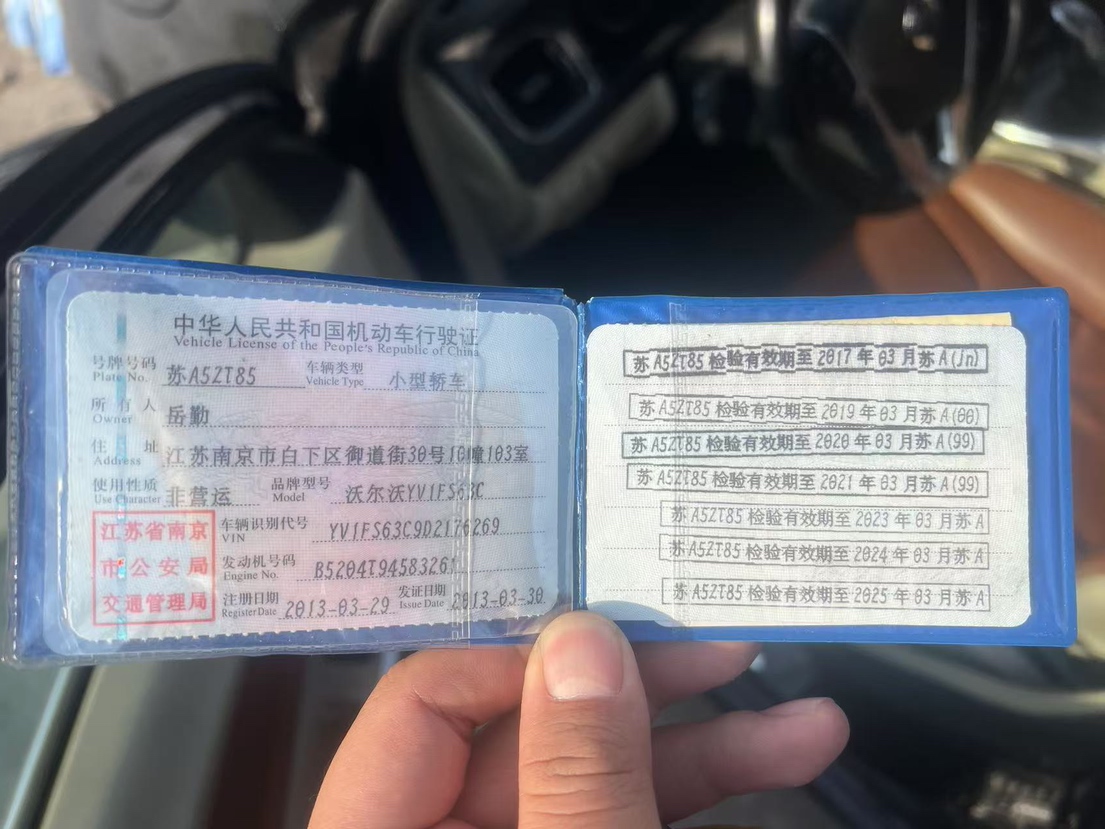 中华人民共和国机动车行驶证
Vehicle License of the People's Republic of China
号牌号码 苏A5ZT85 车辆类型 小型轿车
Plate No. Vehicle Type
所有人 岳勤
Owner
住址 江苏南京市白下区御道街30号10幢103室
Address
使用性质 非营运 品牌型号 沃尔沃YV1FS63C
Use Character Model
江苏省南京市公安局交通管理局
车辆识别代号 YV1FS63C9D2176269
VIN
发动机号码 B5204T94583261
Engine No.
注册日期 2013-03-29 发证日期 2013-03-30
Register Date Issue Date
苏A5ZT85检验有效期至2017年03月苏A(Jn)
苏A5ZT85检验有效期至2019年03月苏A(00)
苏A5ZT85检验有效期至2020年03月苏A(99)
苏A5ZT85检验有效期至2021年03月苏A(99)
苏A5ZT85检验有效期至2023年03月苏A
苏A5ZT85检验有效期至2024年03月苏A
苏A5ZT85检验有效期至2025年03月苏A